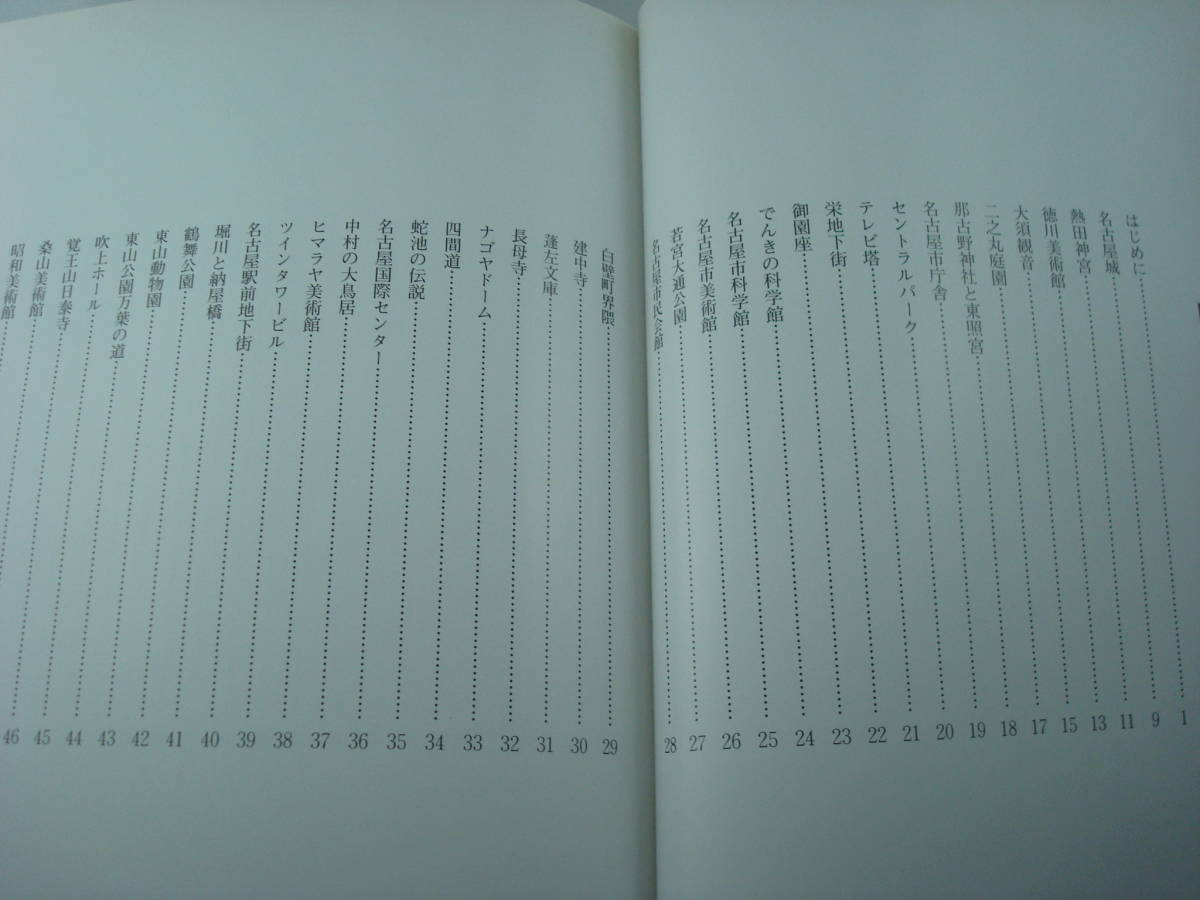 はじめに……1
名古屋城……9
熱田神宮……11
徳川美術館……13
大須観音……15
二之丸庭園……17
那古野神社と東照宮……18
名古屋市庁舎……19
セントラルパーク……20
テレビ塔……21
栄地下街……22
御園座……23
でんきの科学館……24
名古屋市科学館……25
名古屋市美術館……26
若宮大通公園……27
名古屋市民会館……28
白壁町界隈……29
建中寺……30
蓬左文庫……31
長母寺……32
ナゴヤドーム……33
四間道……34
蛇池の伝説……35
名古屋国際センター……36
中村の大鳥居……37
ヒマラヤ美術館……38
ツインタワービル……39
名古屋駅前地下街……40
堀川と納屋橋……41
鶴舞公園……42
東山動物園……43
東山公園万葉の道……44
吹上ホール……45
覚王山日泰寺……46
桑山美術館……
昭和美術館……